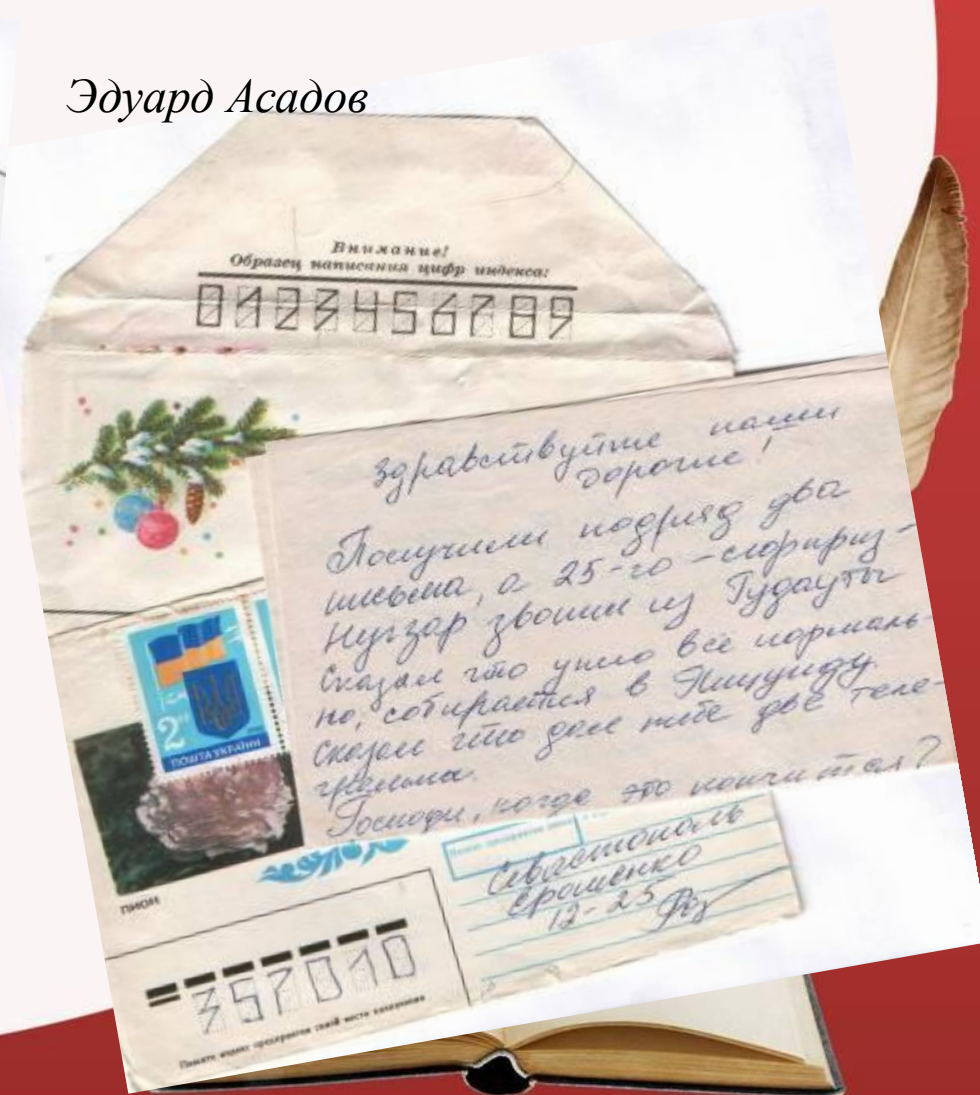 Эдуард Асадов
Внимание!
Образец написания цифр индекса:
0123456789
Здравствуйте наши
дорогие!
Получили подряд два
письма, а 25-го -сюрприз-
Нугзар звонил из Гудауты
Сказал что у них все нормаль-
но, собирается в Пицунду.
Сказал что дал тебе две теле-
граммы.
Господи, когда это кончится?
2
ПОШТА УКРАЇНИ
Севастополь
Ерошенко
12-25
ПИОН
357010
Пишите индекс предприятия связи места назначения